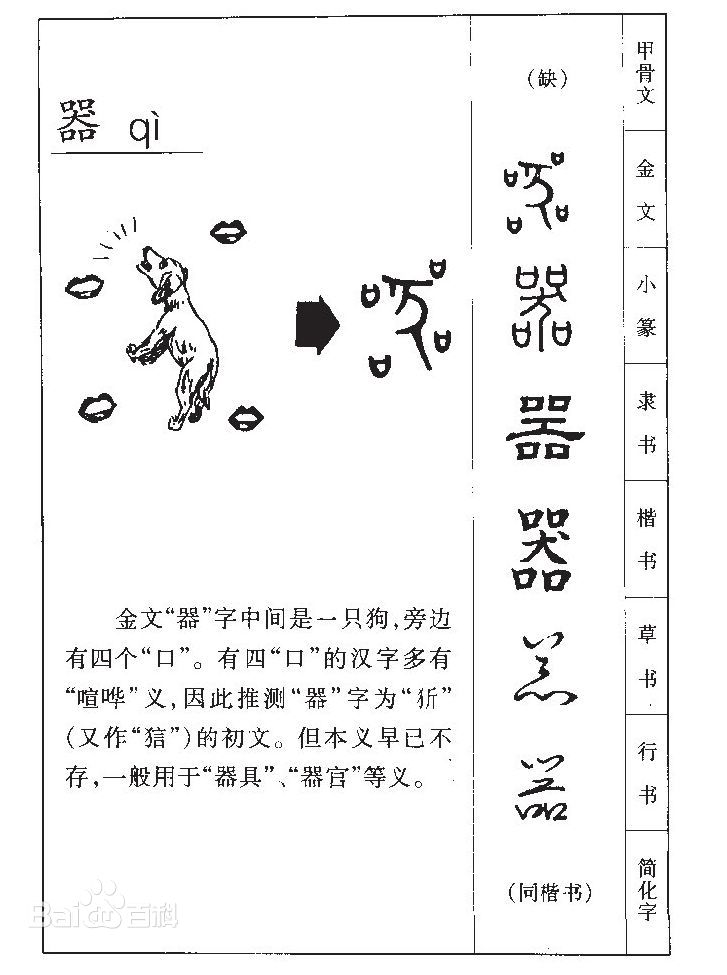 器 qì
金文“器”字中间是一只狗,旁边
有四个“口”。有四“口”的汉字多有
“喧哗”义,因此推测“器”字为“㹞”
(又作“狺”)的初文。但本义早已不
存,一般用于“器具”、“器官”等义。
(缺)
器
器
器
器
器
器
(同楷书)
甲骨文
金文
小篆
隶书
楷书
草书
行书
简化字
Bai du 百科